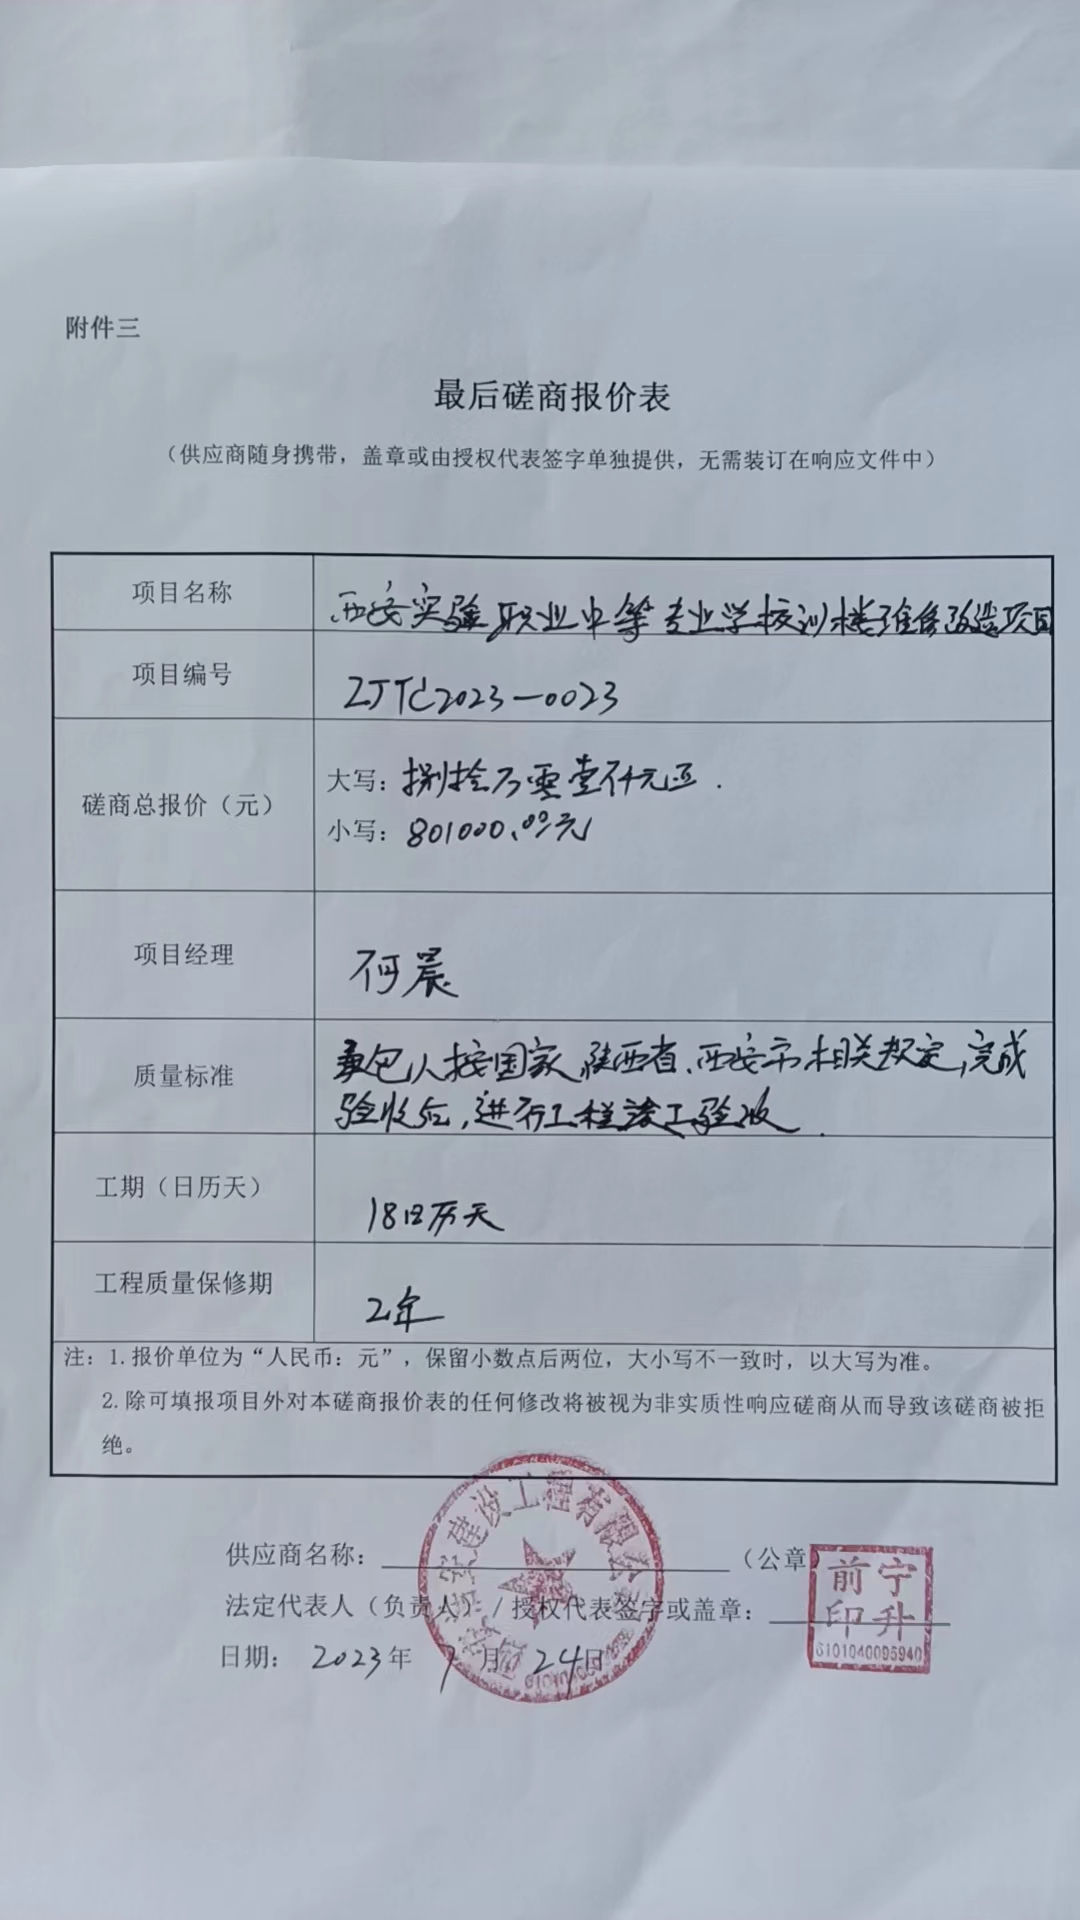 附件三
最后磋商报价表
（供应商随身携带，盖章或由授权代表签字单独提供，无需装订在响应文件中）
项目名称
西安实验职业中等专业学校训楼维修改造项目
项目编号
ZJTC2023—0023
磋商总报价（元）
大写：捌拾万零壹仟元正.
小写：801000.00元
项目经理
何晨
质量标准
承包人按国家、陕西省、西安市相关规定，完成
验收后，进行工程竣工验收.
工期（日历天）
18日历天
工程质量保修期
2年
注：1.报价单位为“人民币：元”，保留小数点后两位，大小写不一致时，以大写为准。
2.除可填报项目外对本磋商报价表的任何修改将被视为非实质性响应磋商从而导致该磋商被拒
绝。
建设工程有限公
供应商名称：（公章）
法定代表人（负责人）/授权代表签字或盖章：
宁升前印
6101040095940
日期：2023年 月24日